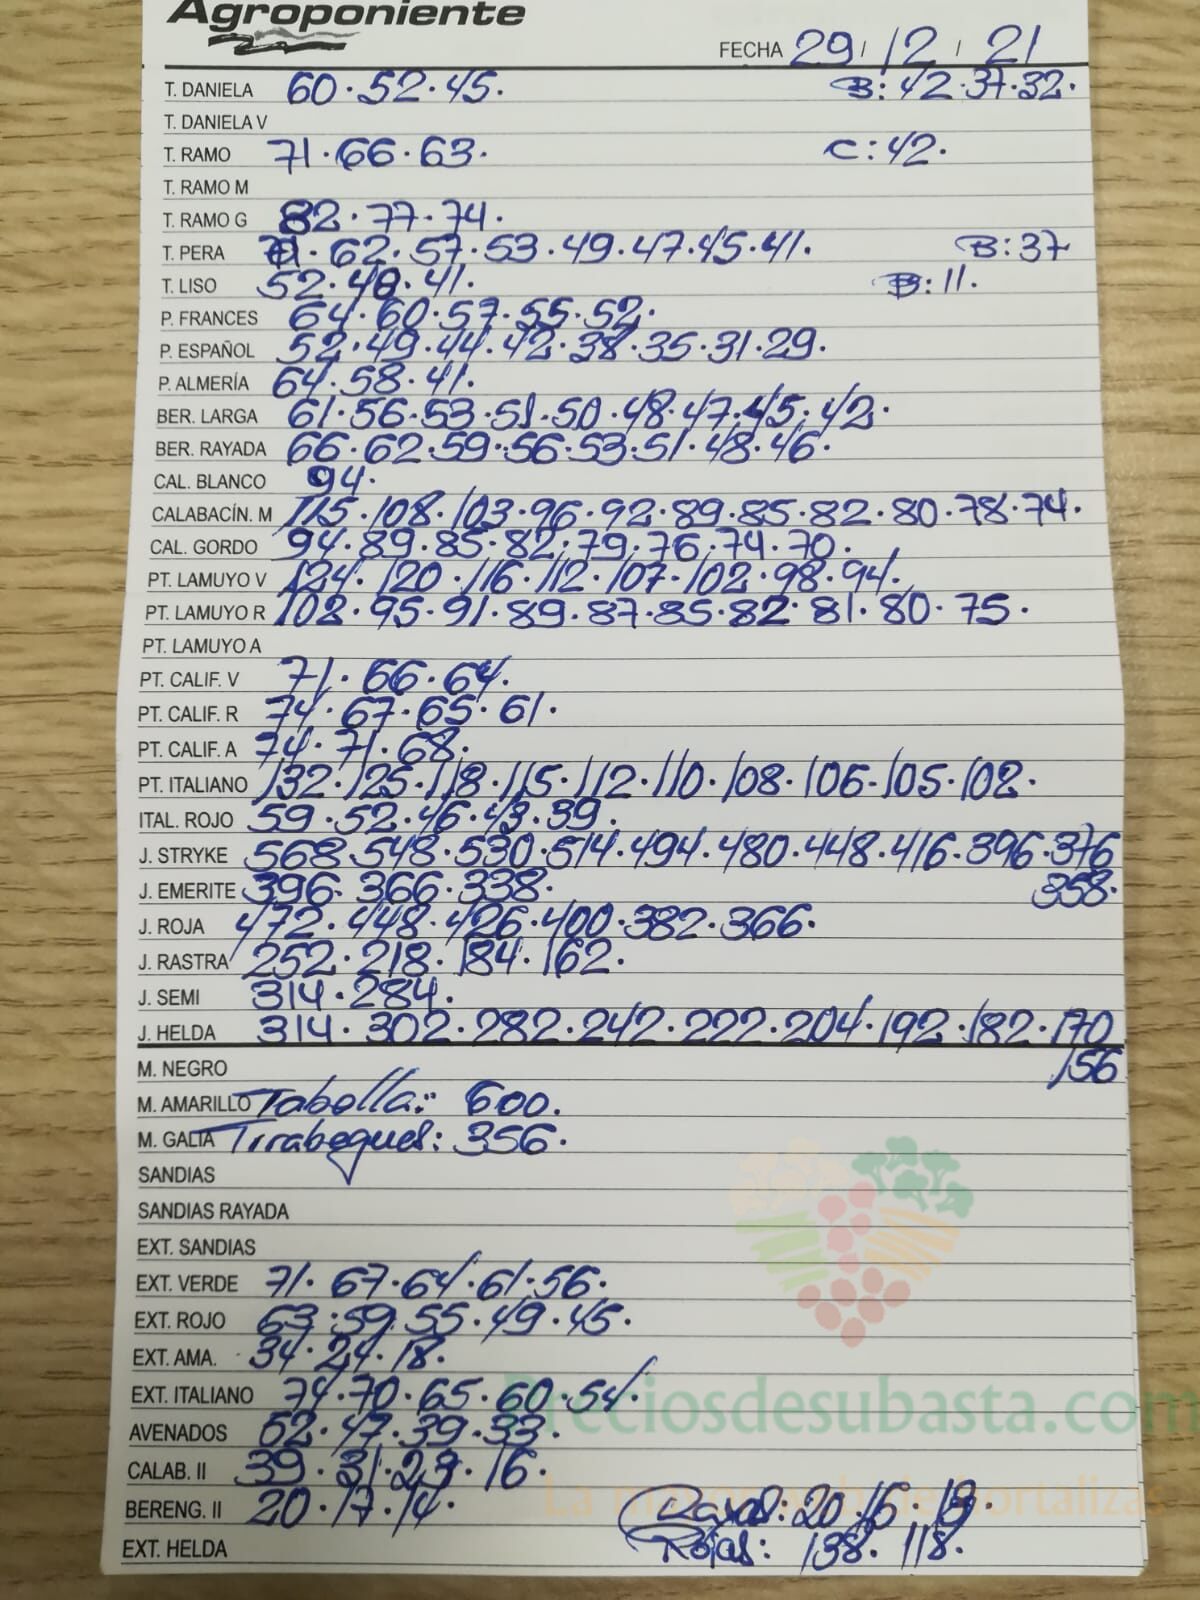 Agroponiente
FECHA 29/12/21
T. DANIELA 60.52.45. B: 42.37.32.
T. DANIELA V
T. RAMO 71.66.63. C: 42.
T. RAMO M
T. RAMO G 82.77.74.
T. PERA 71.62.57.53.49.47.45.41. B: 37
T. LISO 52.48.41. B: 11.
P. FRANCES 64.60.57.55.52.
P. ESPAÑOL 52.49.44.42.38.35.31.29.
P. ALMERÍA 64.58.41.
BER. LARGA 61.56.53.51.50.48.47.45.42.
BER. RAYADA 66.62.59.56.53.51.48.46.
CAL. BLANCO 94.
CALABACÍN. M 115.108.103.96.92.89.85.82.80.78.74.
CAL. GORDO 94.89.85.82.79.76.74.70.
PT. LAMUYO V 124.120.116.112.107.102.98.94.
PT. LAMUYO R 102.95.91.89.87.85.82.81.80.75.
PT. LAMUYO A
PT. CALIF. V 71.66.64.
PT. CALIF. R 74.67.65.61.
PT. CALIF. A 74.71.68.
PT. ITALIANO 132.125.118.115.112.110.108.106.105.102.
ITAL. ROJO 59.52.46.43.39.
J. STRYKE 568.548.530.514.494.480.448.416.396.376
J. EMERITE 396.366.338. 358.
J. ROJA 472.448.426.400.382.366.
J. RASTRA 252.218.184.162.
J. SEMI 314.284.
J. HELDA 314.302.282.242.222.204.192.182.170
M. NEGRO 156
M. AMARILLO Tabella: 600.
M. GALIA Tirabeques: 356.
SANDIAS
SANDIAS RAYADA
EXT. SANDIAS
EXT. VERDE 71.67.64.61.56.
EXT. ROJO 63.59.55.49.45.
EXT. AMA. 34.24.18.
EXT. ITALIANO 74.70.65.60.54.
Preciosdesubasta.com
AVENADOS 47.39.33.
CALAB. II 39.31.16.
BERENG. II 20.17.14. 20.16.
EXT. HELDA Rojas: 138.118.